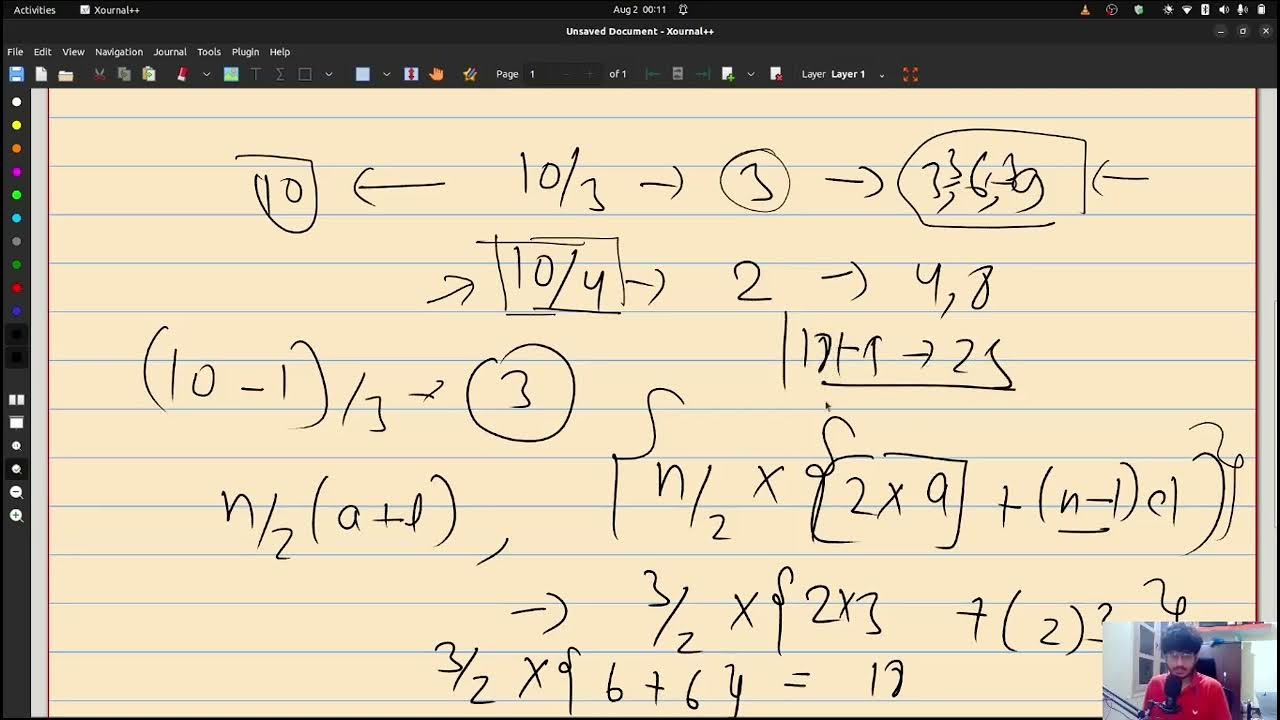 Activities Xournal++ Aug 2 00:11
Unsaved Document - Xournal++
File Edit View Navigation Journal Tools Plugin Help
Page 1 of 1 Layer Layer 1
10 ← 10/3 → 3 → 3, 6, 9 ←
→ 10/4 → 2 → 4, 8
18+9 → 25
(10-1)/3 → 3
n/2 (a+l), n/2 × {2×a + (n-1)d}
→ 3/2 × {2×3 + (2)3}
3/2 × {6+6} = 18